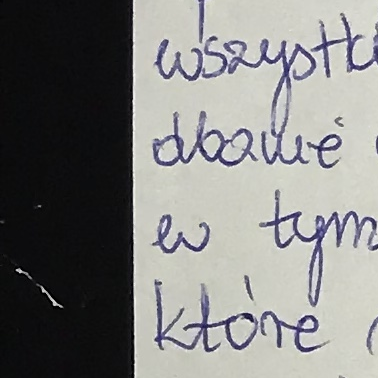 wszystki
dbanie
w tym
które